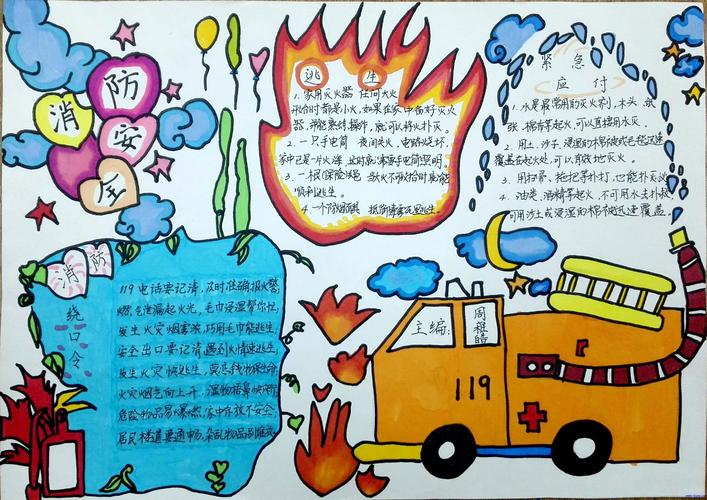 消防安全
逃生
1. 家用灭火器 任何大火
初始时都是小火,如果在家中备好灭火
器,并能熟练操作,就可以将火扑灭。
2. 一只手电筒 夜间失火,电路烧坏,
家中已是一片火海,这时就靠手电筒照明。
3. 一根保险绳
顺利逃生。
4. 一个防烟面具
紧急
应付
1. 水是最常用的灭火剂,木头、纸
张、棉布等起火,可以直接用水灭。
2. 用土、沙子、浸湿的棉被或毛毯迅速
覆盖在起火处,可以有效地灭火。
3. 用扫帚、拖把等扑打,也能扑灭火
4. 油类、酒精等起火,不可用水去扑救
可用沙土或浸湿的棉被迅速覆盖。
消防
绕口令
119电话要记清,及时准确报火警
燃气泄漏起火光,毛巾浸湿帮你忙
发生火灾烟雾浓,巧用毛巾能逃生
安全出口要记清,遇到火情速逃生
发生火灾快逃生,莫恋钱物保生命
火灾烟气向上升,湿物捂鼻
危险物品易爆燃,家中存放不安全
居民楼道要通畅,杂乱物品
主编:
周
119